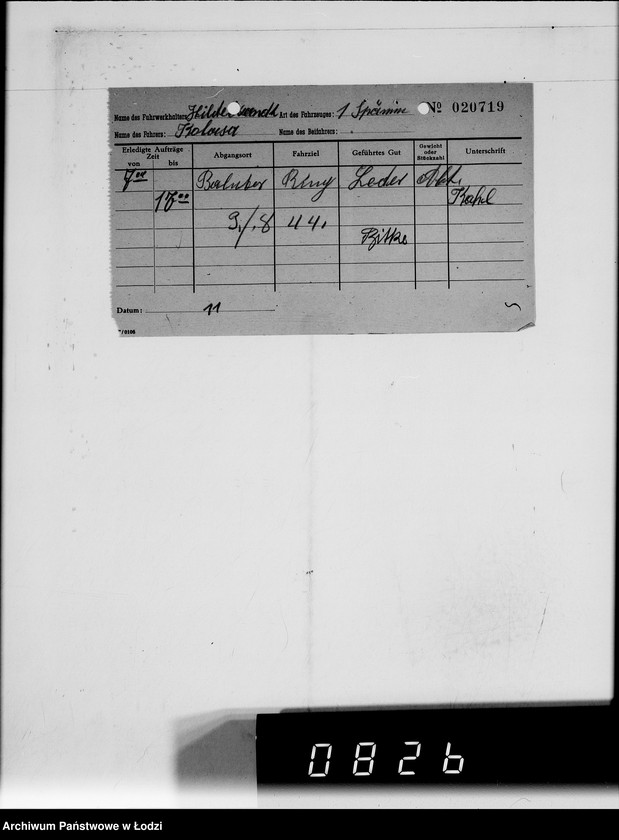 Name des Fuhrwerkhalters: Hildebrandt Art des Fahrzeuges: 1 Spänner № 020719
Name des Fahrers: Name des Beifahrers: -
Erledigte Aufträge Zeit von bis Abgangsort Fahrziel Geführtes Gut Gewicht oder Stückzahl Unterschrift
7 00 Ring Leder
17 00
3./.8 44.
Datum: 11
7/0106
0826
Archiwum Państwowe w Łodzi